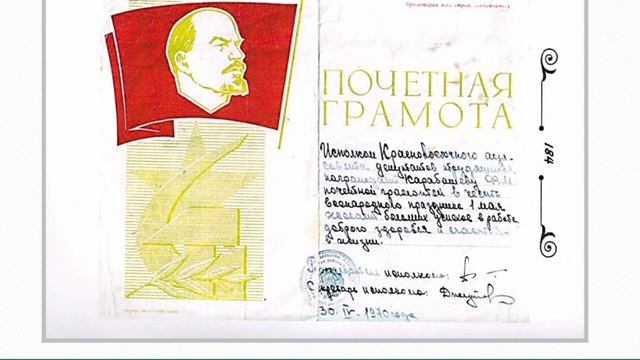 Пролетарии всех стран, соединяйтесь!
ПОЧЕТНАЯ
ГРАМОТА
Исполком Красновосточного аул-
совета депутатов трудящихся
награждает Карабашеву Ф.М.
почетной грамотой в честь
всенародного праздника 1 мая
желаем больших успехов в работе
доброго здоровья и счастья
в жизни.
исполкома:
исполкома:
30. IV- 1970 года
184